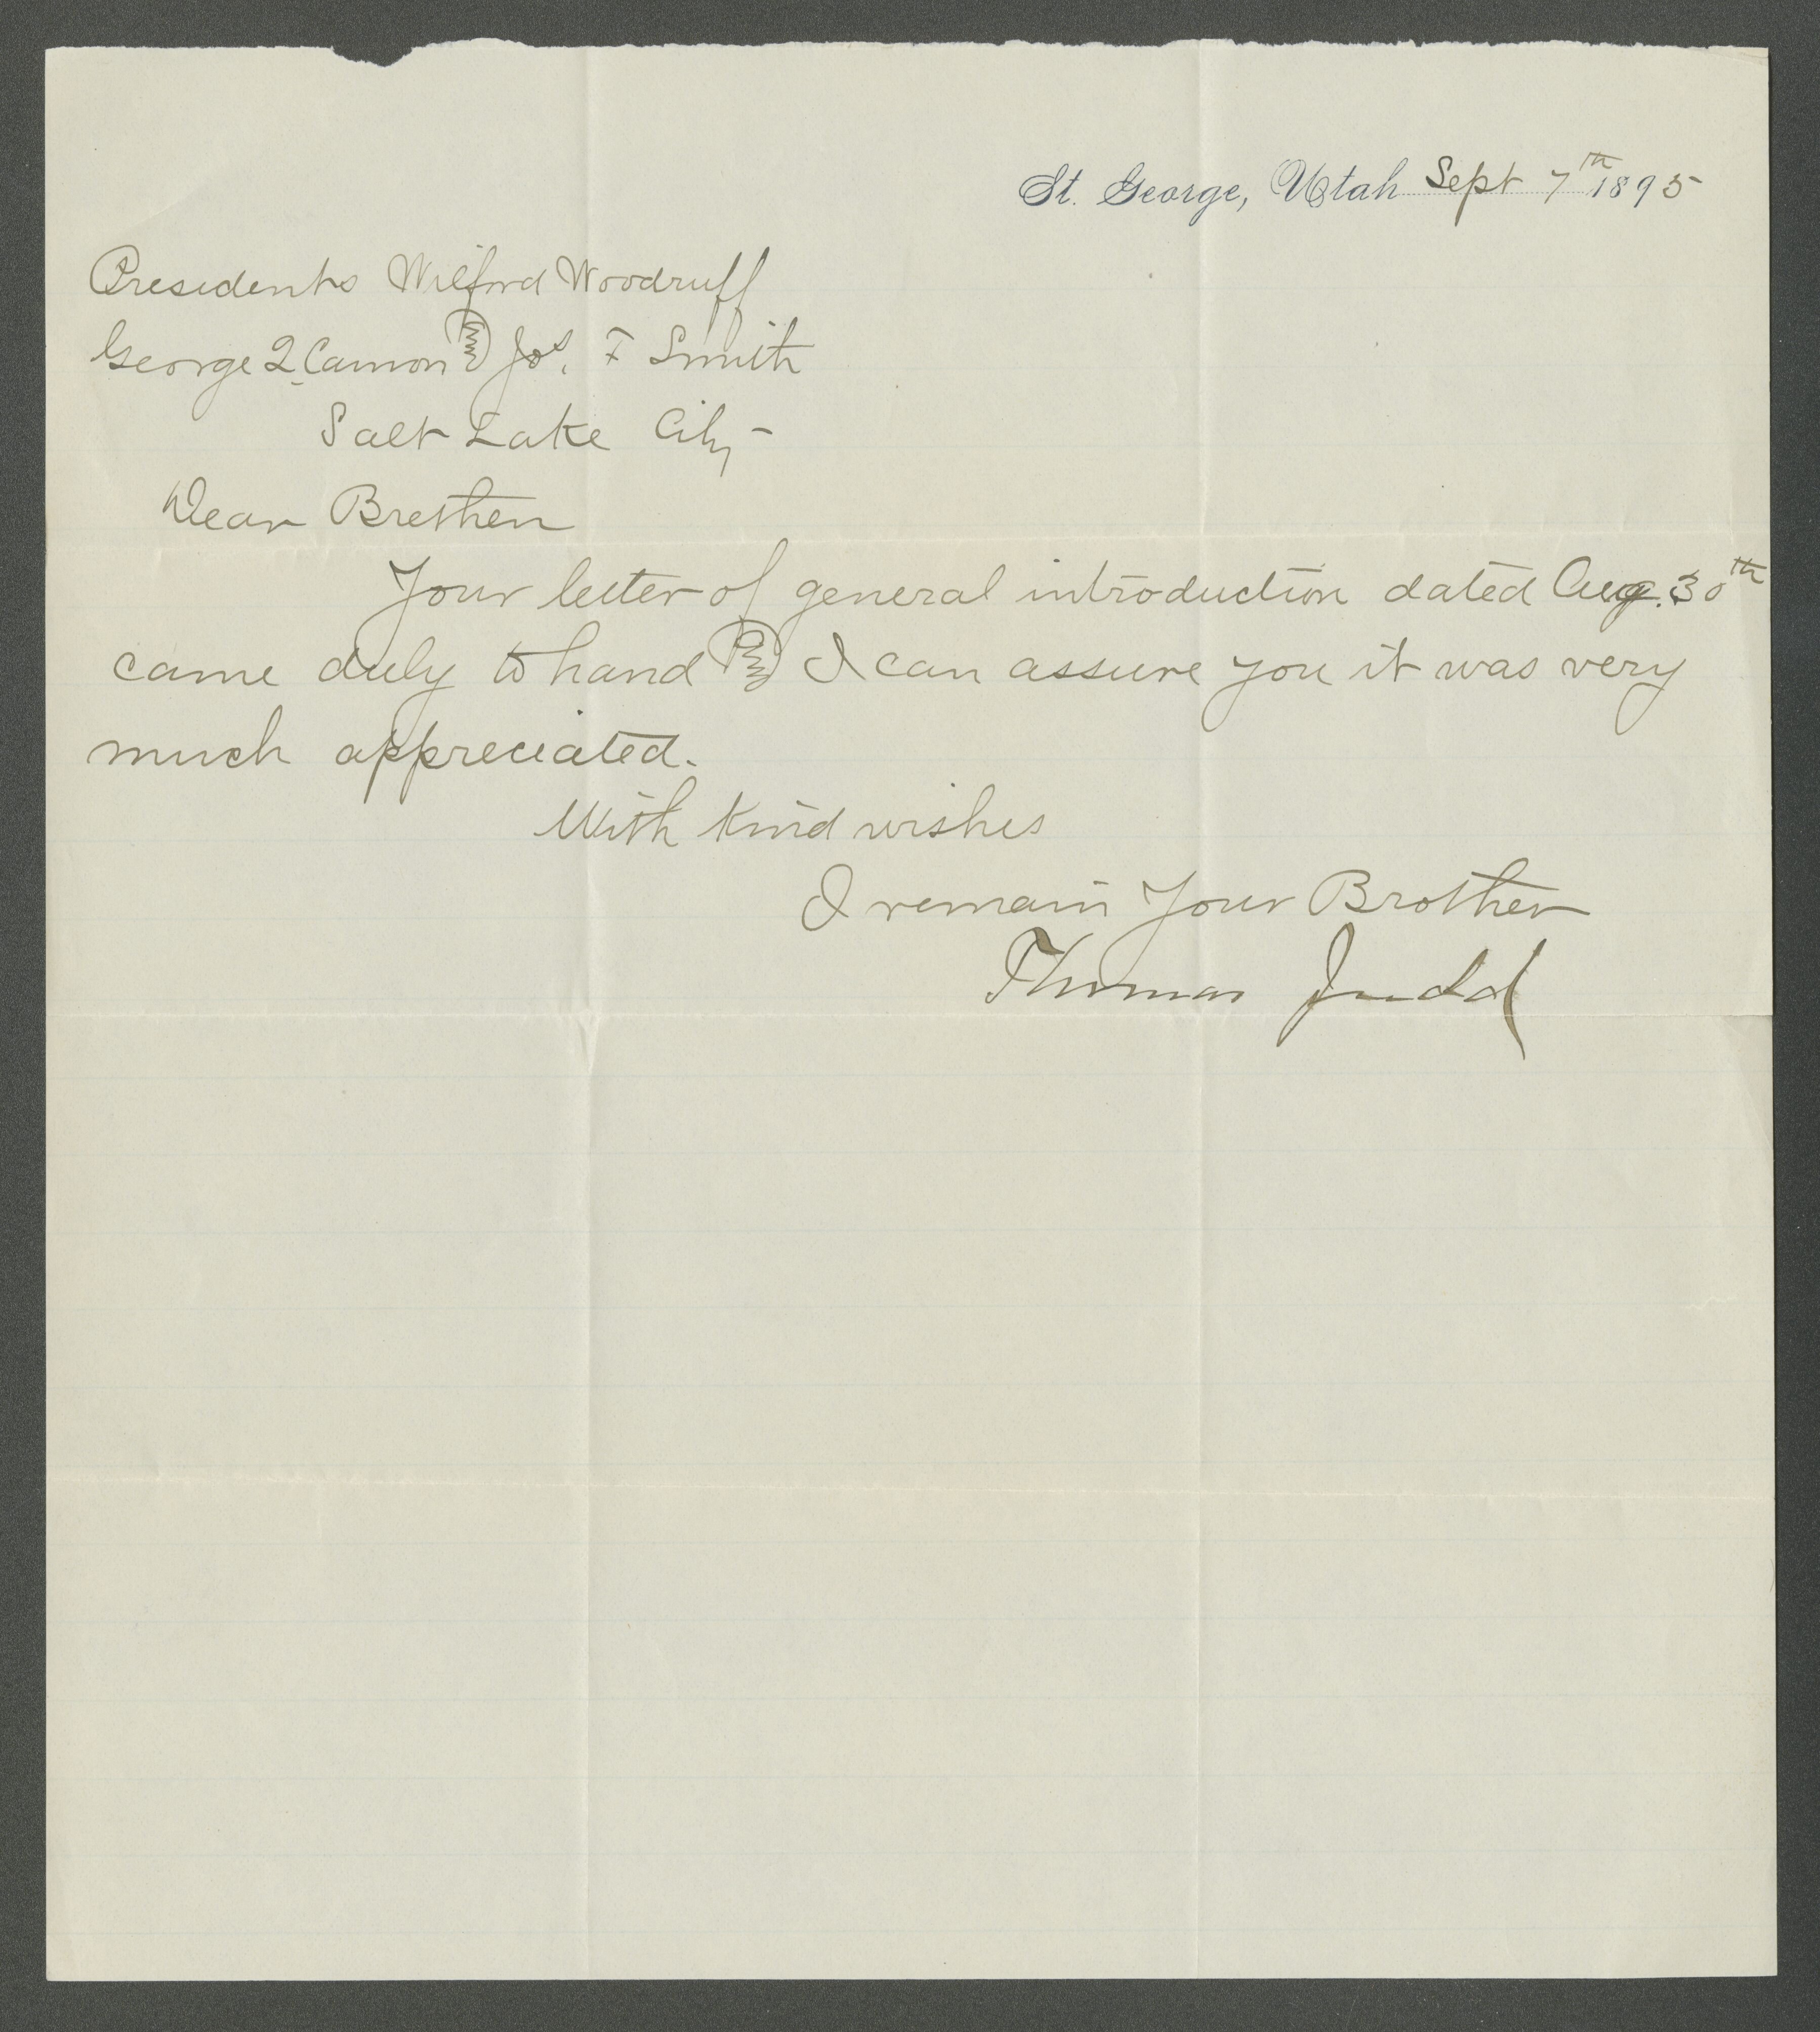 St. George, Utah Sept 7th 1895
Presidents Wilford Woodruff
George Q Cannon & Jos. F Smith
Salt Lake City -
Dear Brethen
Your letter of general introduction dated Aug. 30th
came duly to hand & I can assure you it was very
much appreciated.
With kind wishes
I remain Your Brother
Thomas Judd